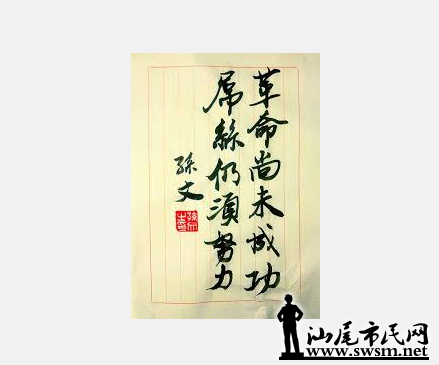 革命尚未成功
屌絲仍須努力
孫文
汕尾市民网
www.swsm.net